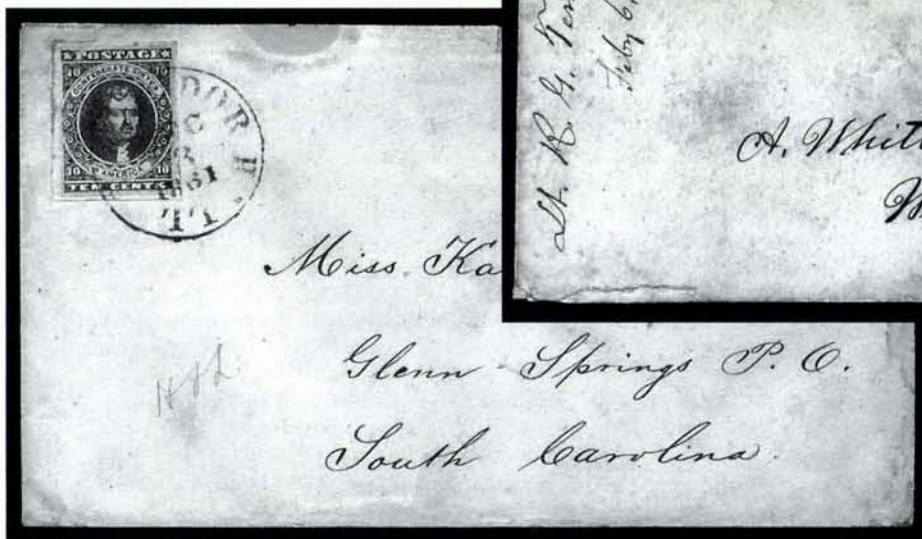 POSTAGE
10 10
CONFEDERATE STATES
AMERICA
10 10
TEN CENTS
DOR H
1861
Miss. Ka
Glenn Springs P. O.
South Carolina
Lt. R. G.
Feby 6,
A. Whitt